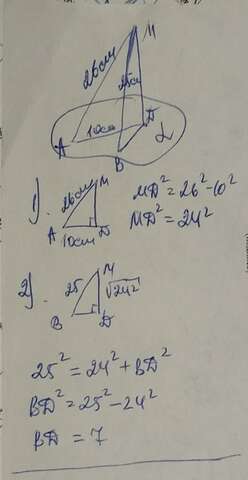 M
26см
25см
10см
A
D
B
α
1).
26см
M
A
D
10см
MD²=26²-10²
MD²=24²
2).
M
25
√24²
B
D
25²=24²+BD²
BD²=25²-24²
BD=7